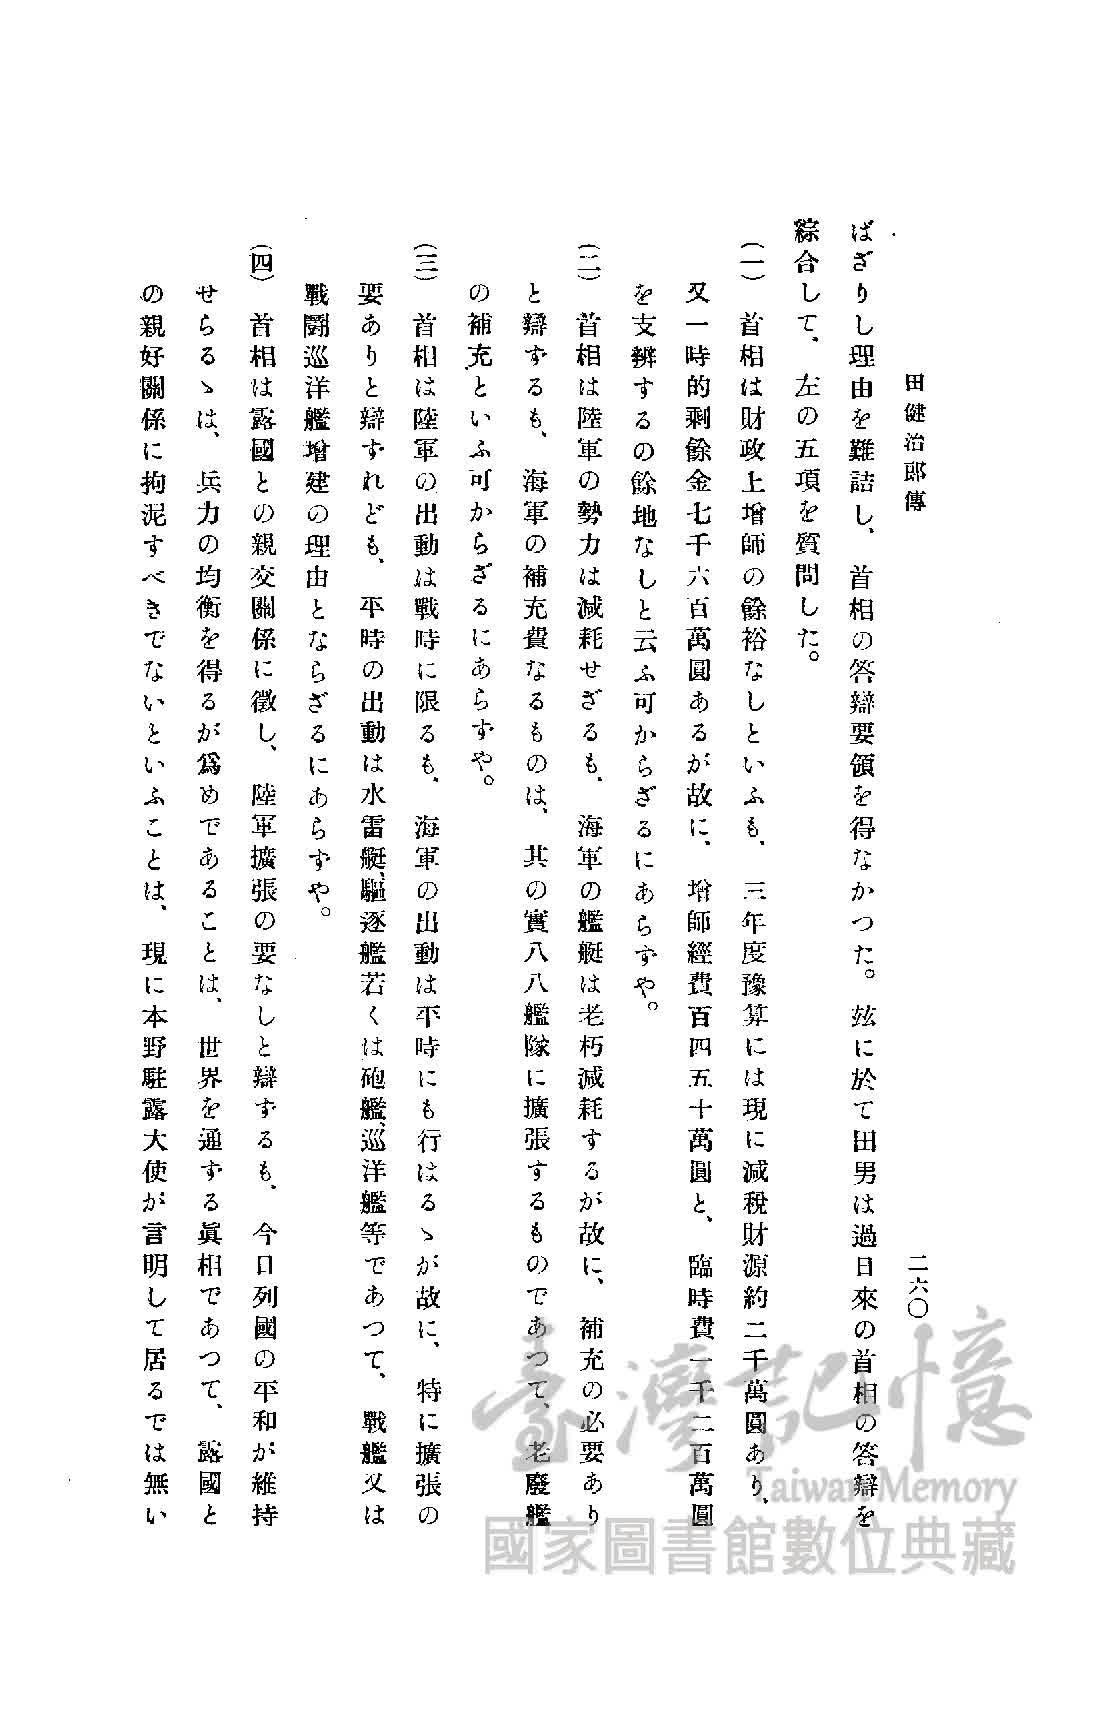 田健治郎傳
二六〇
ばざりし理由を難詰し、首相の答辯要領を得なかつた。玆に於て田男は過日來の首相の答辯を
綜合して、左の五項を質問した。
(一) 首相は財政上增師の餘裕なしといふも、三年度豫算には現に減稅財源約二千萬圓あり、
又一時的剩餘金七千六百萬圓あるが故に、增師經費百四五十萬圓と、臨時費一千二百萬圓
を支辨するの餘地なしと云ふ可からざるにあらずや。
(二) 首相は陸軍の勢力は減耗せざるも、海軍の艦艇は老朽減耗するが故に、補充の必要あり
と辯ずるも、海軍の補充費なるものは、其の實八八艦隊に擴張するものであつて、老廢艦
の補充といふ可からざるにあらずや。
(三) 首相は陸軍の出動は戰時に限るも、海軍の出動は平時にも行はるゝが故に、特に擴張の
要ありと辯ずれども、平時の出動は水雷艇、驅逐艦若くは砲艦、巡洋艦等であつて、戰艦又は
戰鬪巡洋艦增建の理由とならざるにあらずや。
(四) 首相は露國との親交關係に徵し、陸軍擴張の要なしと辯ずるも、今日列國の平和が維持
せらるゝは、兵力の均衡を得るが爲めであることは、世界を通ずる眞相であつて、露國と
の親好關係に拘泥すべきでないといふことは、現に本野駐露大使が言明して居るでは無い
臺灣記憶
Taiwan Memory
國家圖書館數位典藏